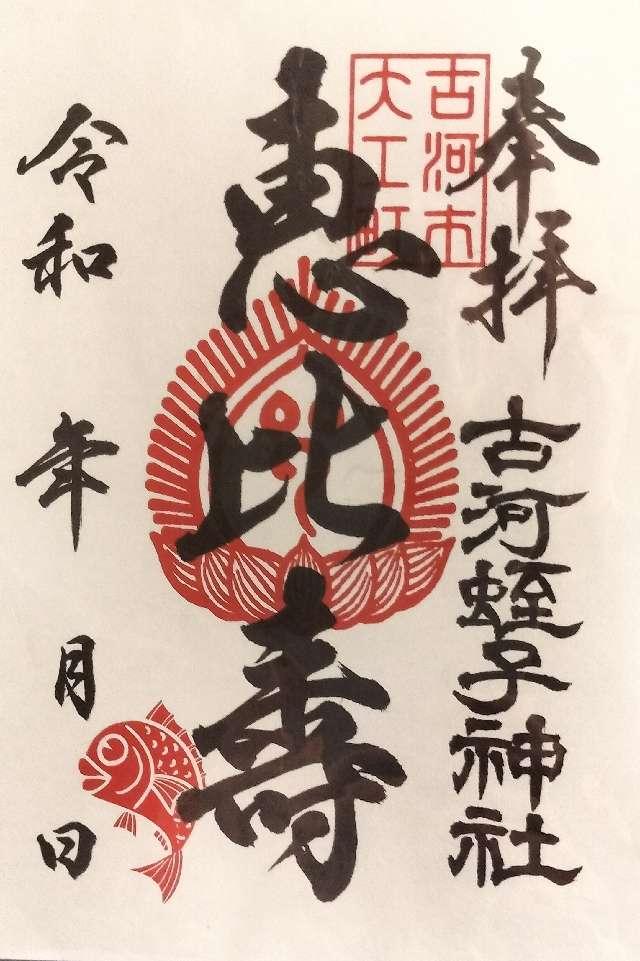 奉拝
古河蛭子神社
古河市
大工町
恵比壽
令和 年 月 日